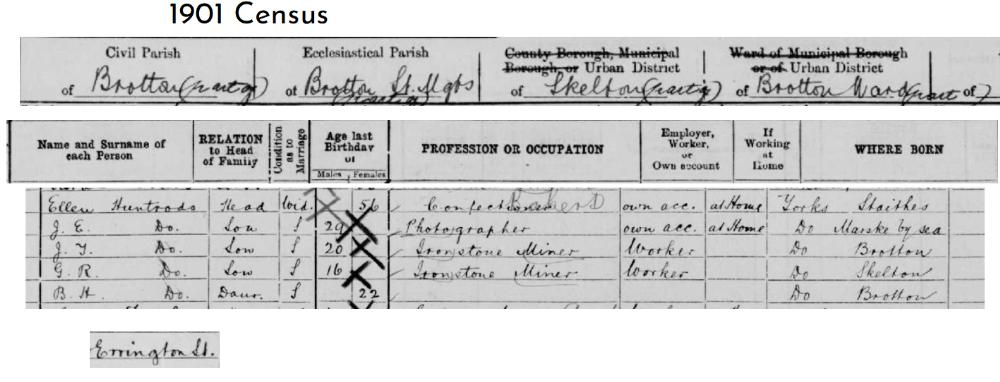 1901 Census
Civil Parish
of Brotton (part of)
Ecclesiastical Parish
of Brotton St. Mgts (part of)
County Borough, Municipal
Borough, or Urban District
of Skelton (part of)
Ward of Municipal Borough
or of Urban District
of Brotton Ward (part of)
Name and Surname of each Person
RELATION to Head of Family
Condition as to Marriage
Age last Birthday of
Males Females
PROFESSION OR OCCUPATION
Employer, Worker, or Own account
If Working at Home
WHERE BORN
Ellen Huntrods Head Wid. 56 Confectioner Baker D own acc. at Home Yorks Staithes
J. E. Do. Son S 29 Photographer own acc. at Home Do Marske by sea
J. T. Do. Son S 20 Ironstone Miner Worker Do Brotton
G. R. Do. Son S 16 Ironstone Miner Worker Do Skelton
B. H. Do. Daur. S 22 Do Brotton
Errington St.